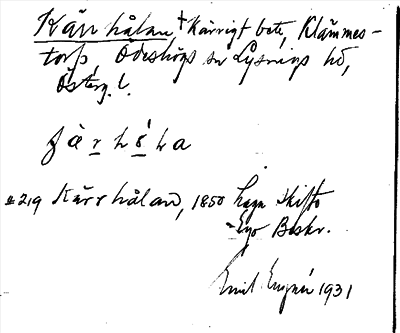 Kärrhålan, + Kärrigt bete, Klämmes-
torp, Ödeshögs sn Lysings hd,
Österg. l.
j ä r h ó l a
#219 Kärrhålan, 1850 Laga skifte
-Ego Beskr.
Emil 1931